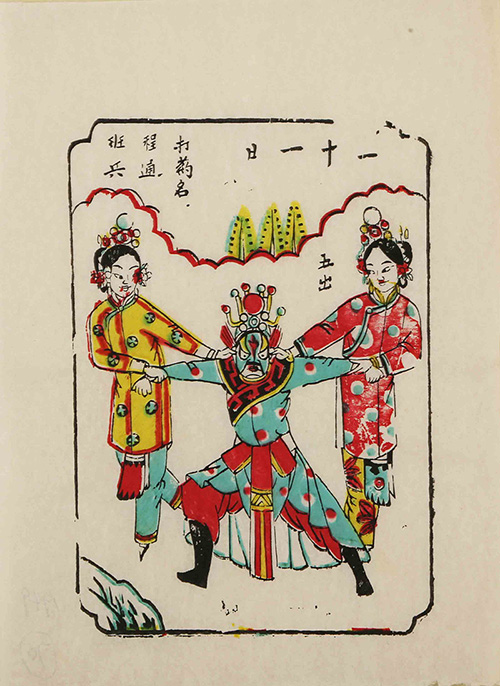 一十一日
打药名
程通
班兵
五出